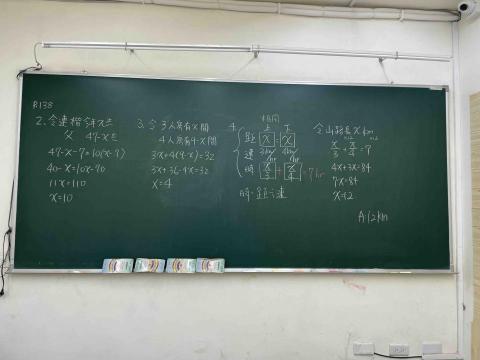 R138
2. 令連楷今年x歲
父 47-x歲
47-x-7=10(x-7)
40-x=10x-70
11x=110
x=10
3. 令3人房有x間
4人房有9-x間
3x+4(9-x)=32
3x+36-4x=32
x=4
4.
相同
上 下
距 x = x
速 3km/hr 4km/hr
時 x/3 + x/4 = 7hr
時=距÷速
令山路長x km
x/3 + x/4 = 7
4x+3x=84
7x=84
x=12
A:12km